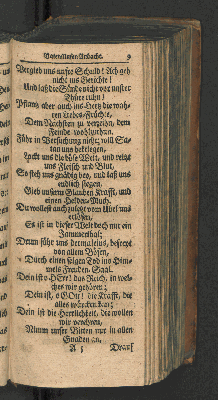 Vaterunsers-Andacht. 9
Vergieb uns unsre Schuld! Ach geh
nicht ins Gerichte!
Und laß die Sünde nicht vor unsrer
Thüre ruhn!
Pflantz aber auch ins Hertz die wah-
ren Liebes-Früchte,
Dem Nechsten zu verzeihn, dem
Feinde wohlzuthun.
Führ in Versuchung nicht; will Sa-
tan uns bekriegen,
Lockt uns die böse Welt, und reitzt
uns Fleisch und Blut,
So steh uns gnädig bey, und laß uns
endlich siegen,
Gieb unserm Glauben Krafft, und
einen Helden-Muth.
Du wollest auch zugleich vom Übel uns
erlösen,
Es ist in dieser Welt doch nur ein
Jammerthal;
Drum führ uns dermaleins, befreyt
von allem Bösen,
Durch einen selgen Tod ins Him-
mels Freuden-Saal.
Dein ist, o HErr! das Reich, in wel-
ches wir gehören;
Dein ist, o GOtt! die Krafft, die
alles würcken kan;
Dein ist die Herrlichkeit, die wollen
wir verehren,
Nimm unser Bitten nur in allen
Gnaden an.
A 5 Drauf